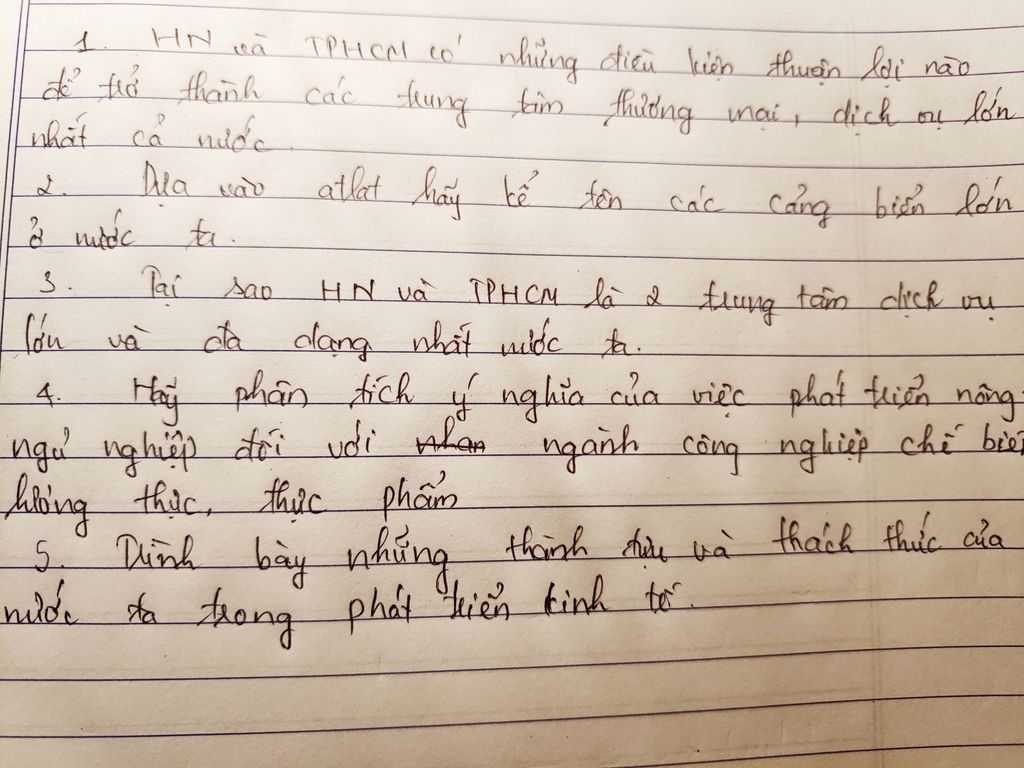 1. HN và TPHCM có những điều kiện thuận lợi nào
để trở thành các trung tâm thương mại, dịch vụ lớn
nhất cả nước.
2. Dựa vào atlat hãy kể tên các cảng biển lớn
ở nước ta.
3. Tại sao HN và TPHCM là 2 trung tâm dịch vụ
lớn và đa dạng nhất nước ta.
4. Hãy phân tích ý nghĩa của việc phát triển nông
ngư nghiệp đối với nhan ngành công nghiệp chế biến
lương thực, thực phẩm
5. Trình bày những thành tựu và thách thức của
nước ta trong phát triển kinh tế.